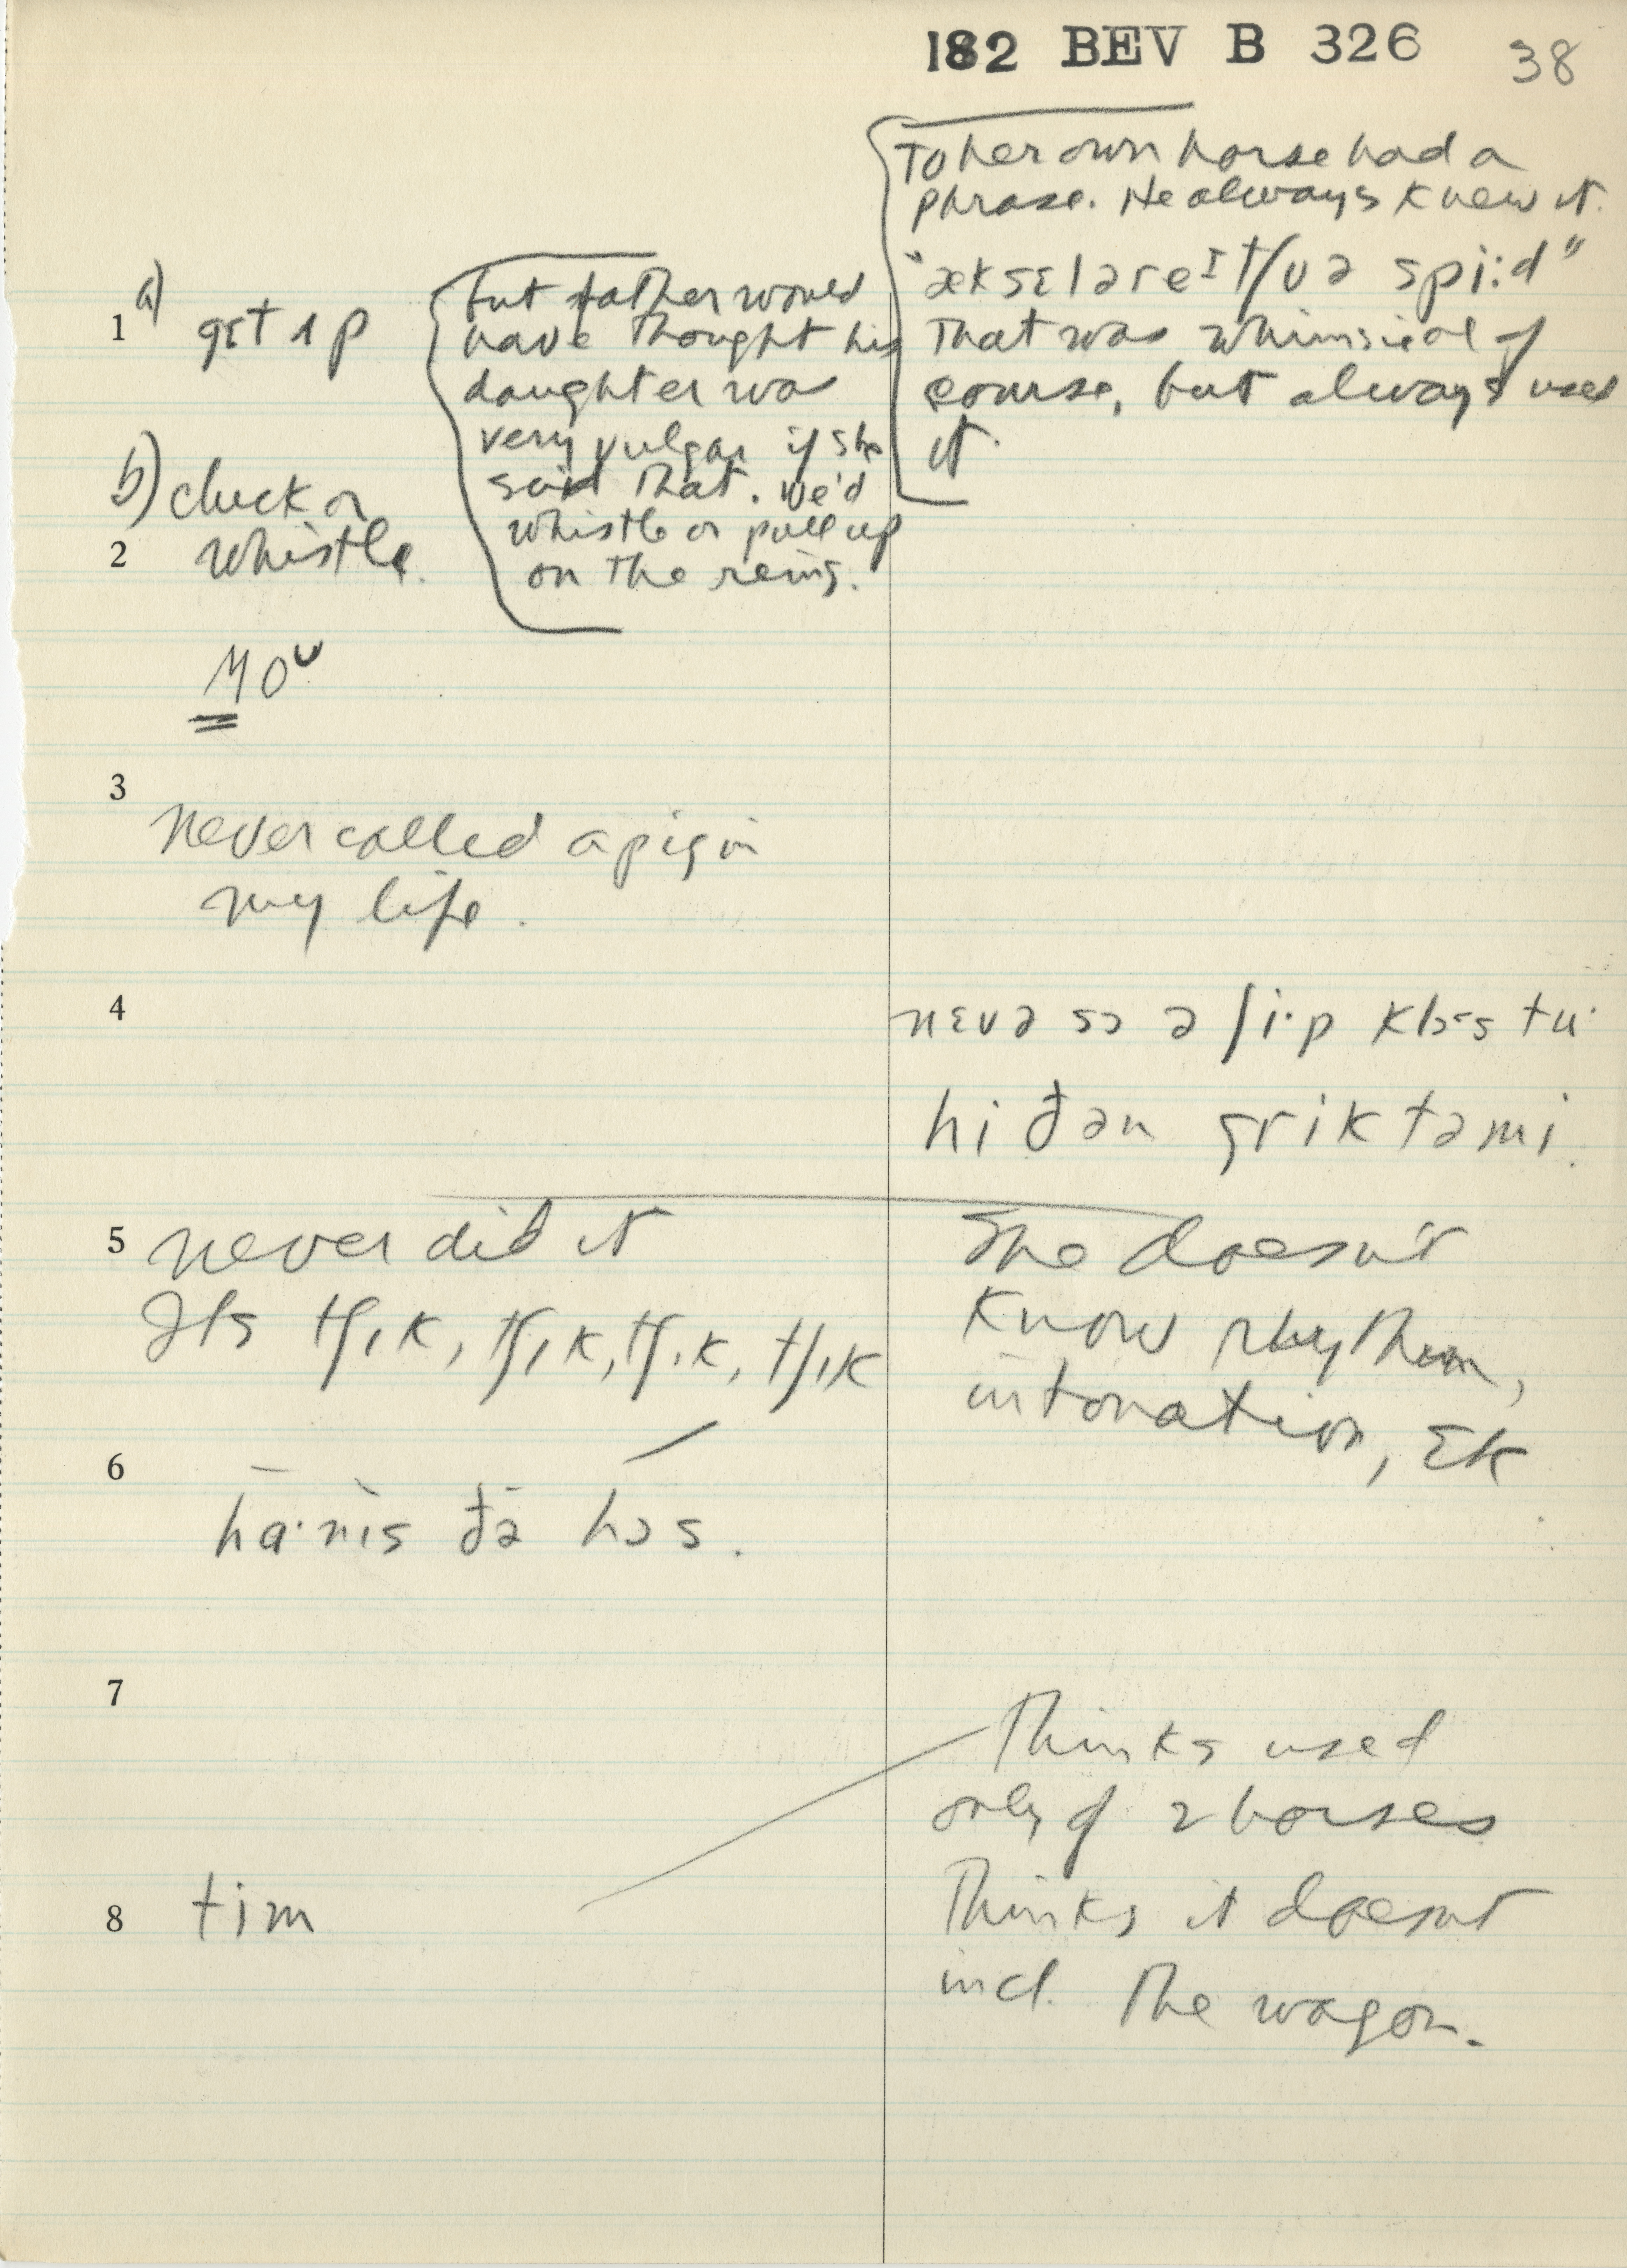 182 BEV B 326 38
To her own horse had a
phrase. He always knew it.
"ækseləreɪtʃʊə spi:d"
That was whimsical of
course, but always used
it.
1 a) gɛt ʌp
but father would
have thought his
daughter was
very vulgar if she
said that. We'd
whistle or pull up
on the reins.
b) cluck or
2 whistle.
3
never called a pig in
my life.
4
nɛvə sɔ ə ʃi·p klɔs tu·
hi ðən grik tə mi.
5 never did it
Its tʃɪk, tʃɪk, tʃɪk, tʃɪk
She doesn't
know rhythm,
intonation,
6
ha·nɪs ðə hɔs.
7
Thinks used
only of 2 horses
Thinks it doesn't
incl. the wagon.
8 tim